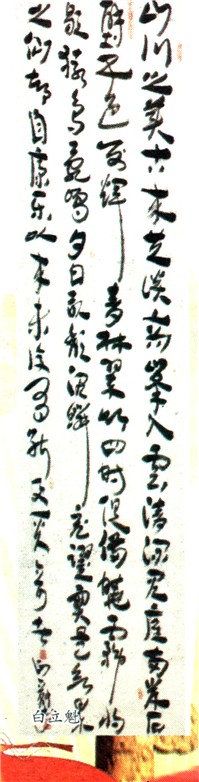 山川之美古来共谈高峰入云清流见底两岸石
壁五色交辉青林翠竹四时俱备晓雾将
歇猿鸟乱鸣夕日欲颓沉鳞竞跃实是欲界
之仙都自康乐以来未复有能与其奇者
白立魁